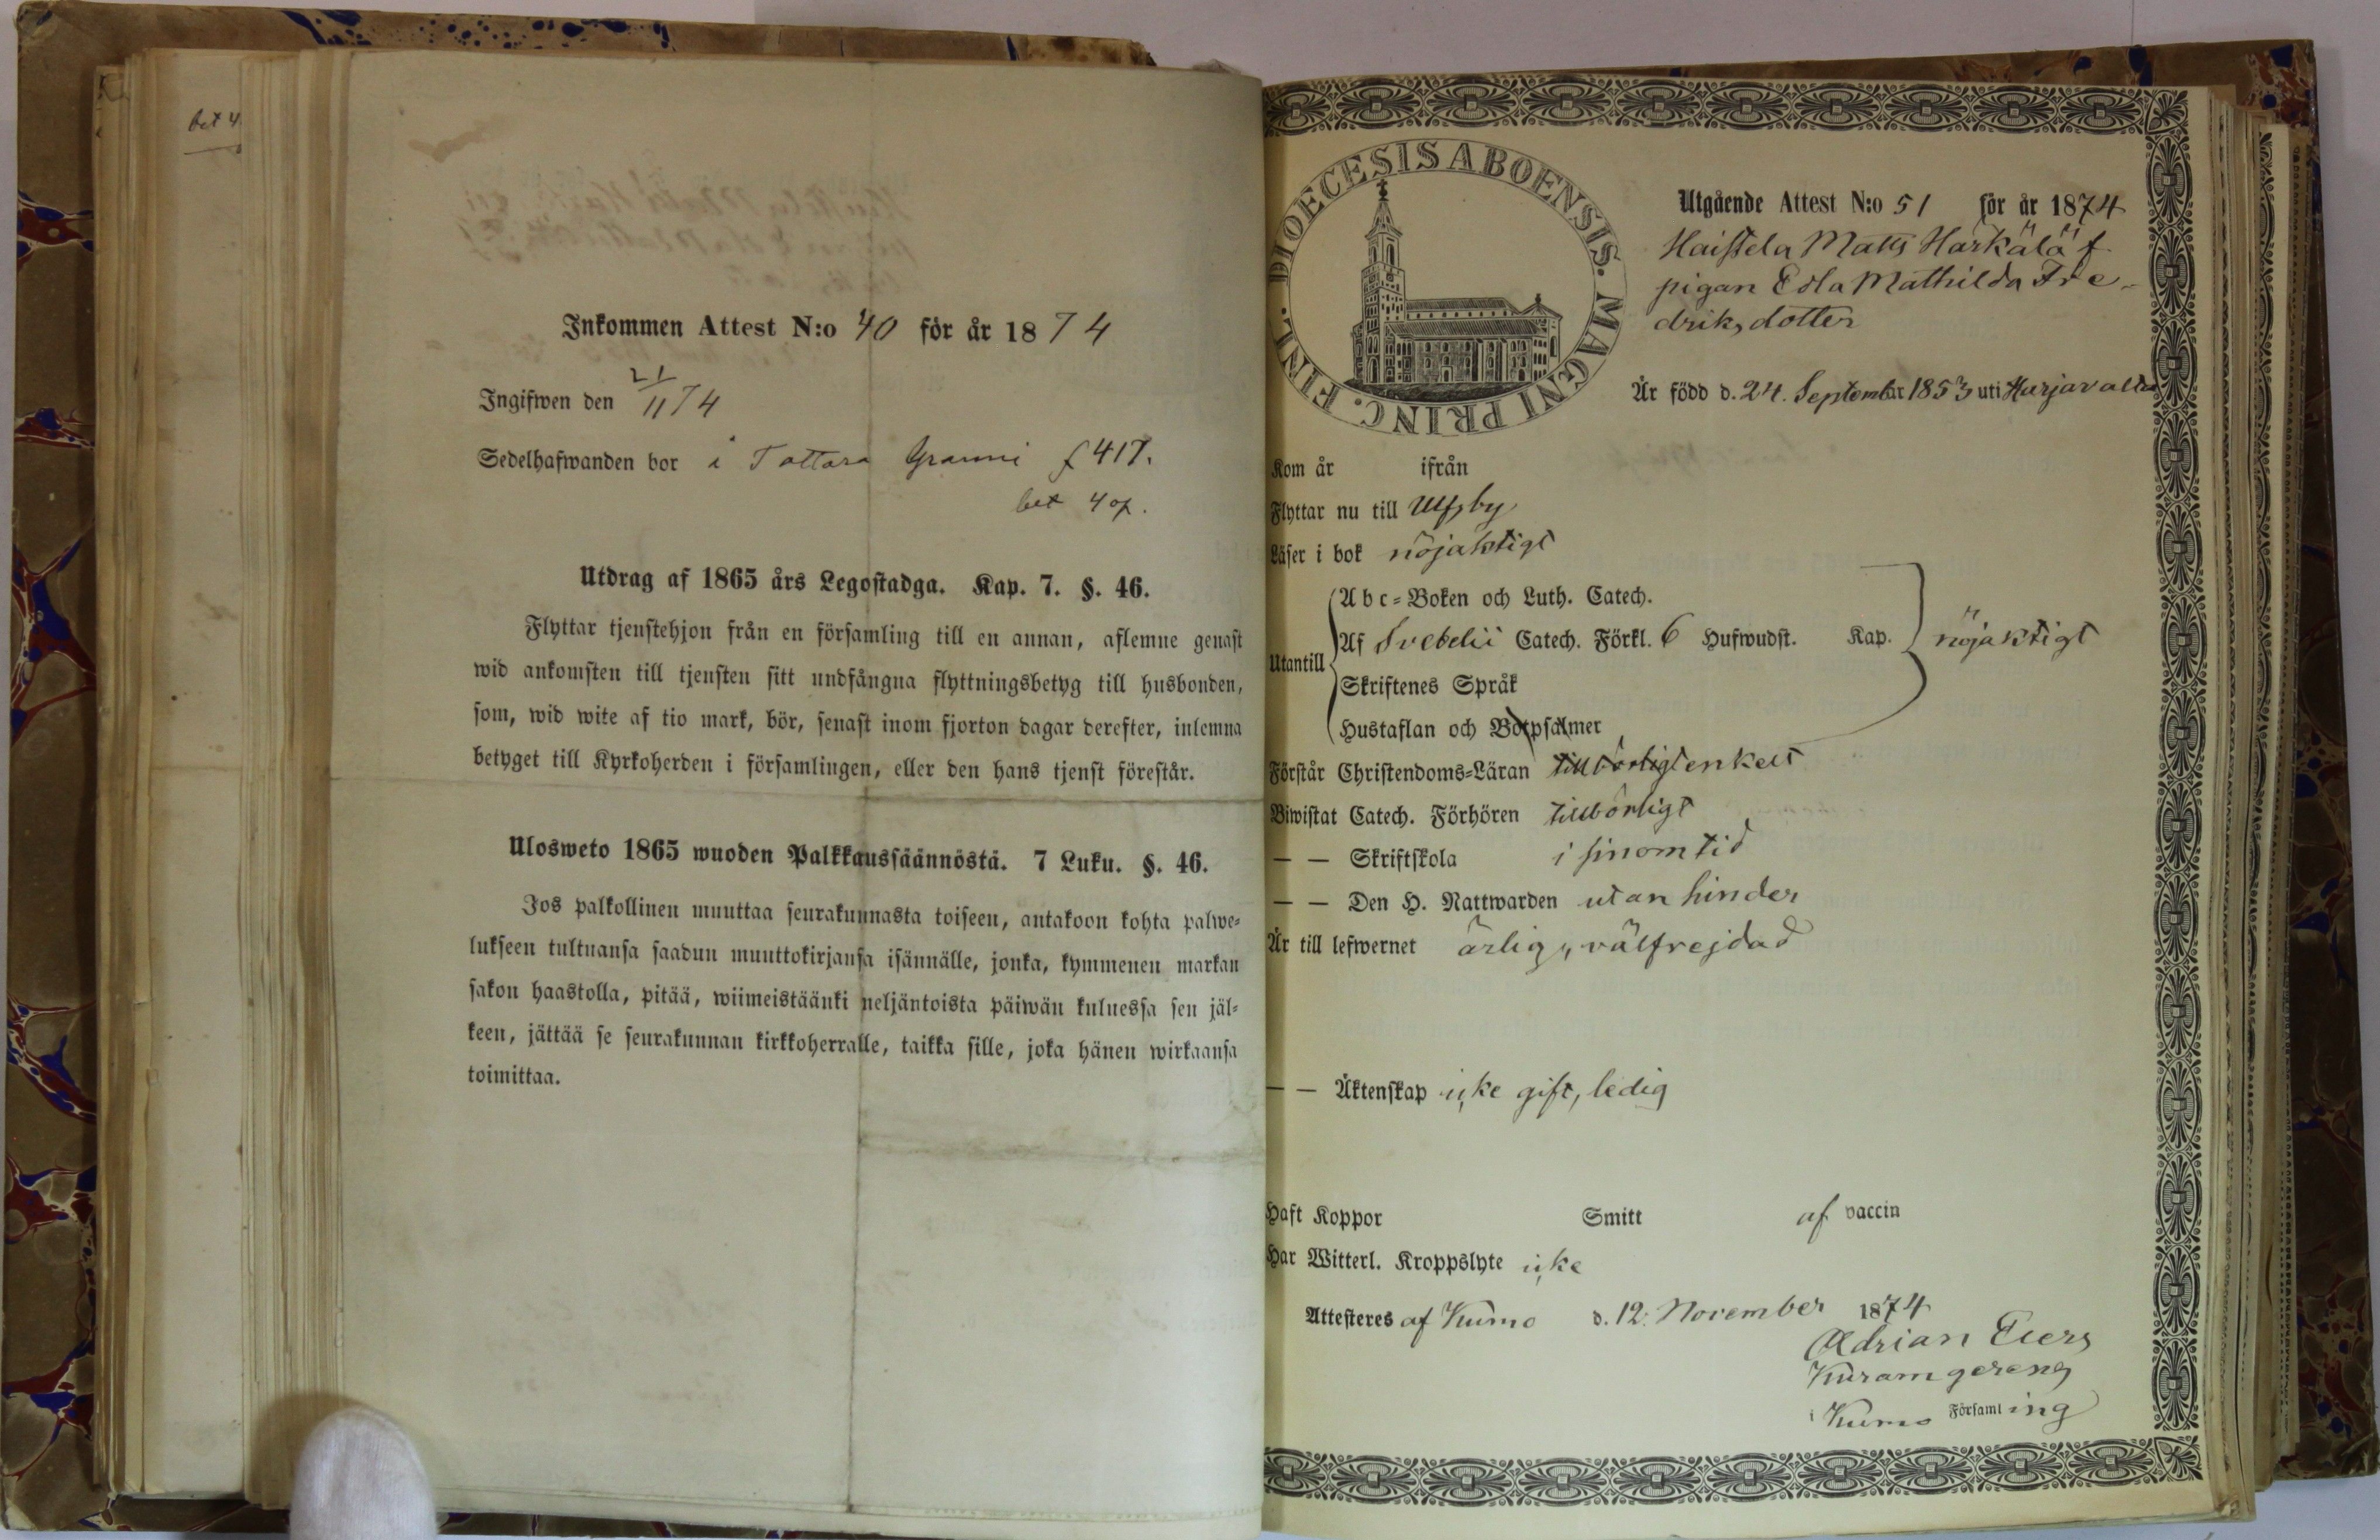 bet 4
Inkommen Attest N:o 40 för år 1874
Ingifwen den 21/11 74
Sedelhafwanden bor i Tattara Granni f 417.
bet 4 of.
Utdrag af 1865 års Legostadga. Kap. 7. §. 46.
Flyttar tjenstehjon från en församling till en annan, aflemne genast
wid ankomsten till tjensten sitt undfångna flyttningsbetyg till husbonden,
som, wid wite af tio mark, bör, senast inom fjorton dagar derefter, inlemna
betyget till Kyrkoherden i församlingen, eller den hans tjenst förestår.
Ulosweto 1865 wuoden Palkkaussäännöstä. 7 Luku. §. 46.
Jos palkollinen muuttaa seurakunnasta toiseen, antakoon kohta palwe-
lukseen tultuansa saadun muuttokirjansa isännälle, jonka, kymmenen markan
sakon haastolla, pitää, wiimeistäänki neljäntoista päiwän kuluessa sen jäl-
keen, jättää se seurakunnan kirkkoherralle, taikka sille, joka hänen wirkaansa
toimittaa.
DIOECESIS ABOENSIS. MAGNI PRINC. FINL.
Utgående Attest N:o 51 för år 1874
Haistela Matts Härkälä f.
pigan Edla Mathilda Fre-
driksdotter
Är född d. 24. September 1853 uti Harjavalta
Kom år ifrån
Flyttar nu till Ulfsby
Läser i bok nöjaktigt
Abc-Boken och Luth. Catech.
Utantill Af Svebelii Catech. Förkl. 6 Hufwudst. Kap. nöjaktigt
Skriftenes Språk
Hustaflan och Botpsalmer
Förstår Christendoms-Läran tillbörligt enkelt
Biwistat Catech. Förhören tillbörligt
— — Skriftskola i sinom tid
— — Den H. Nattwarden utan hinder
Är till lefwernet ärlig, välfrejdad
— — Äktenskap icke gift, ledig
Haft Koppor Smitt af vaccin
Har Witterl. Kroppslyte icke
Attesteres af Kumo d. 12. November 1874
Adrian Euers
i Kumo Församling